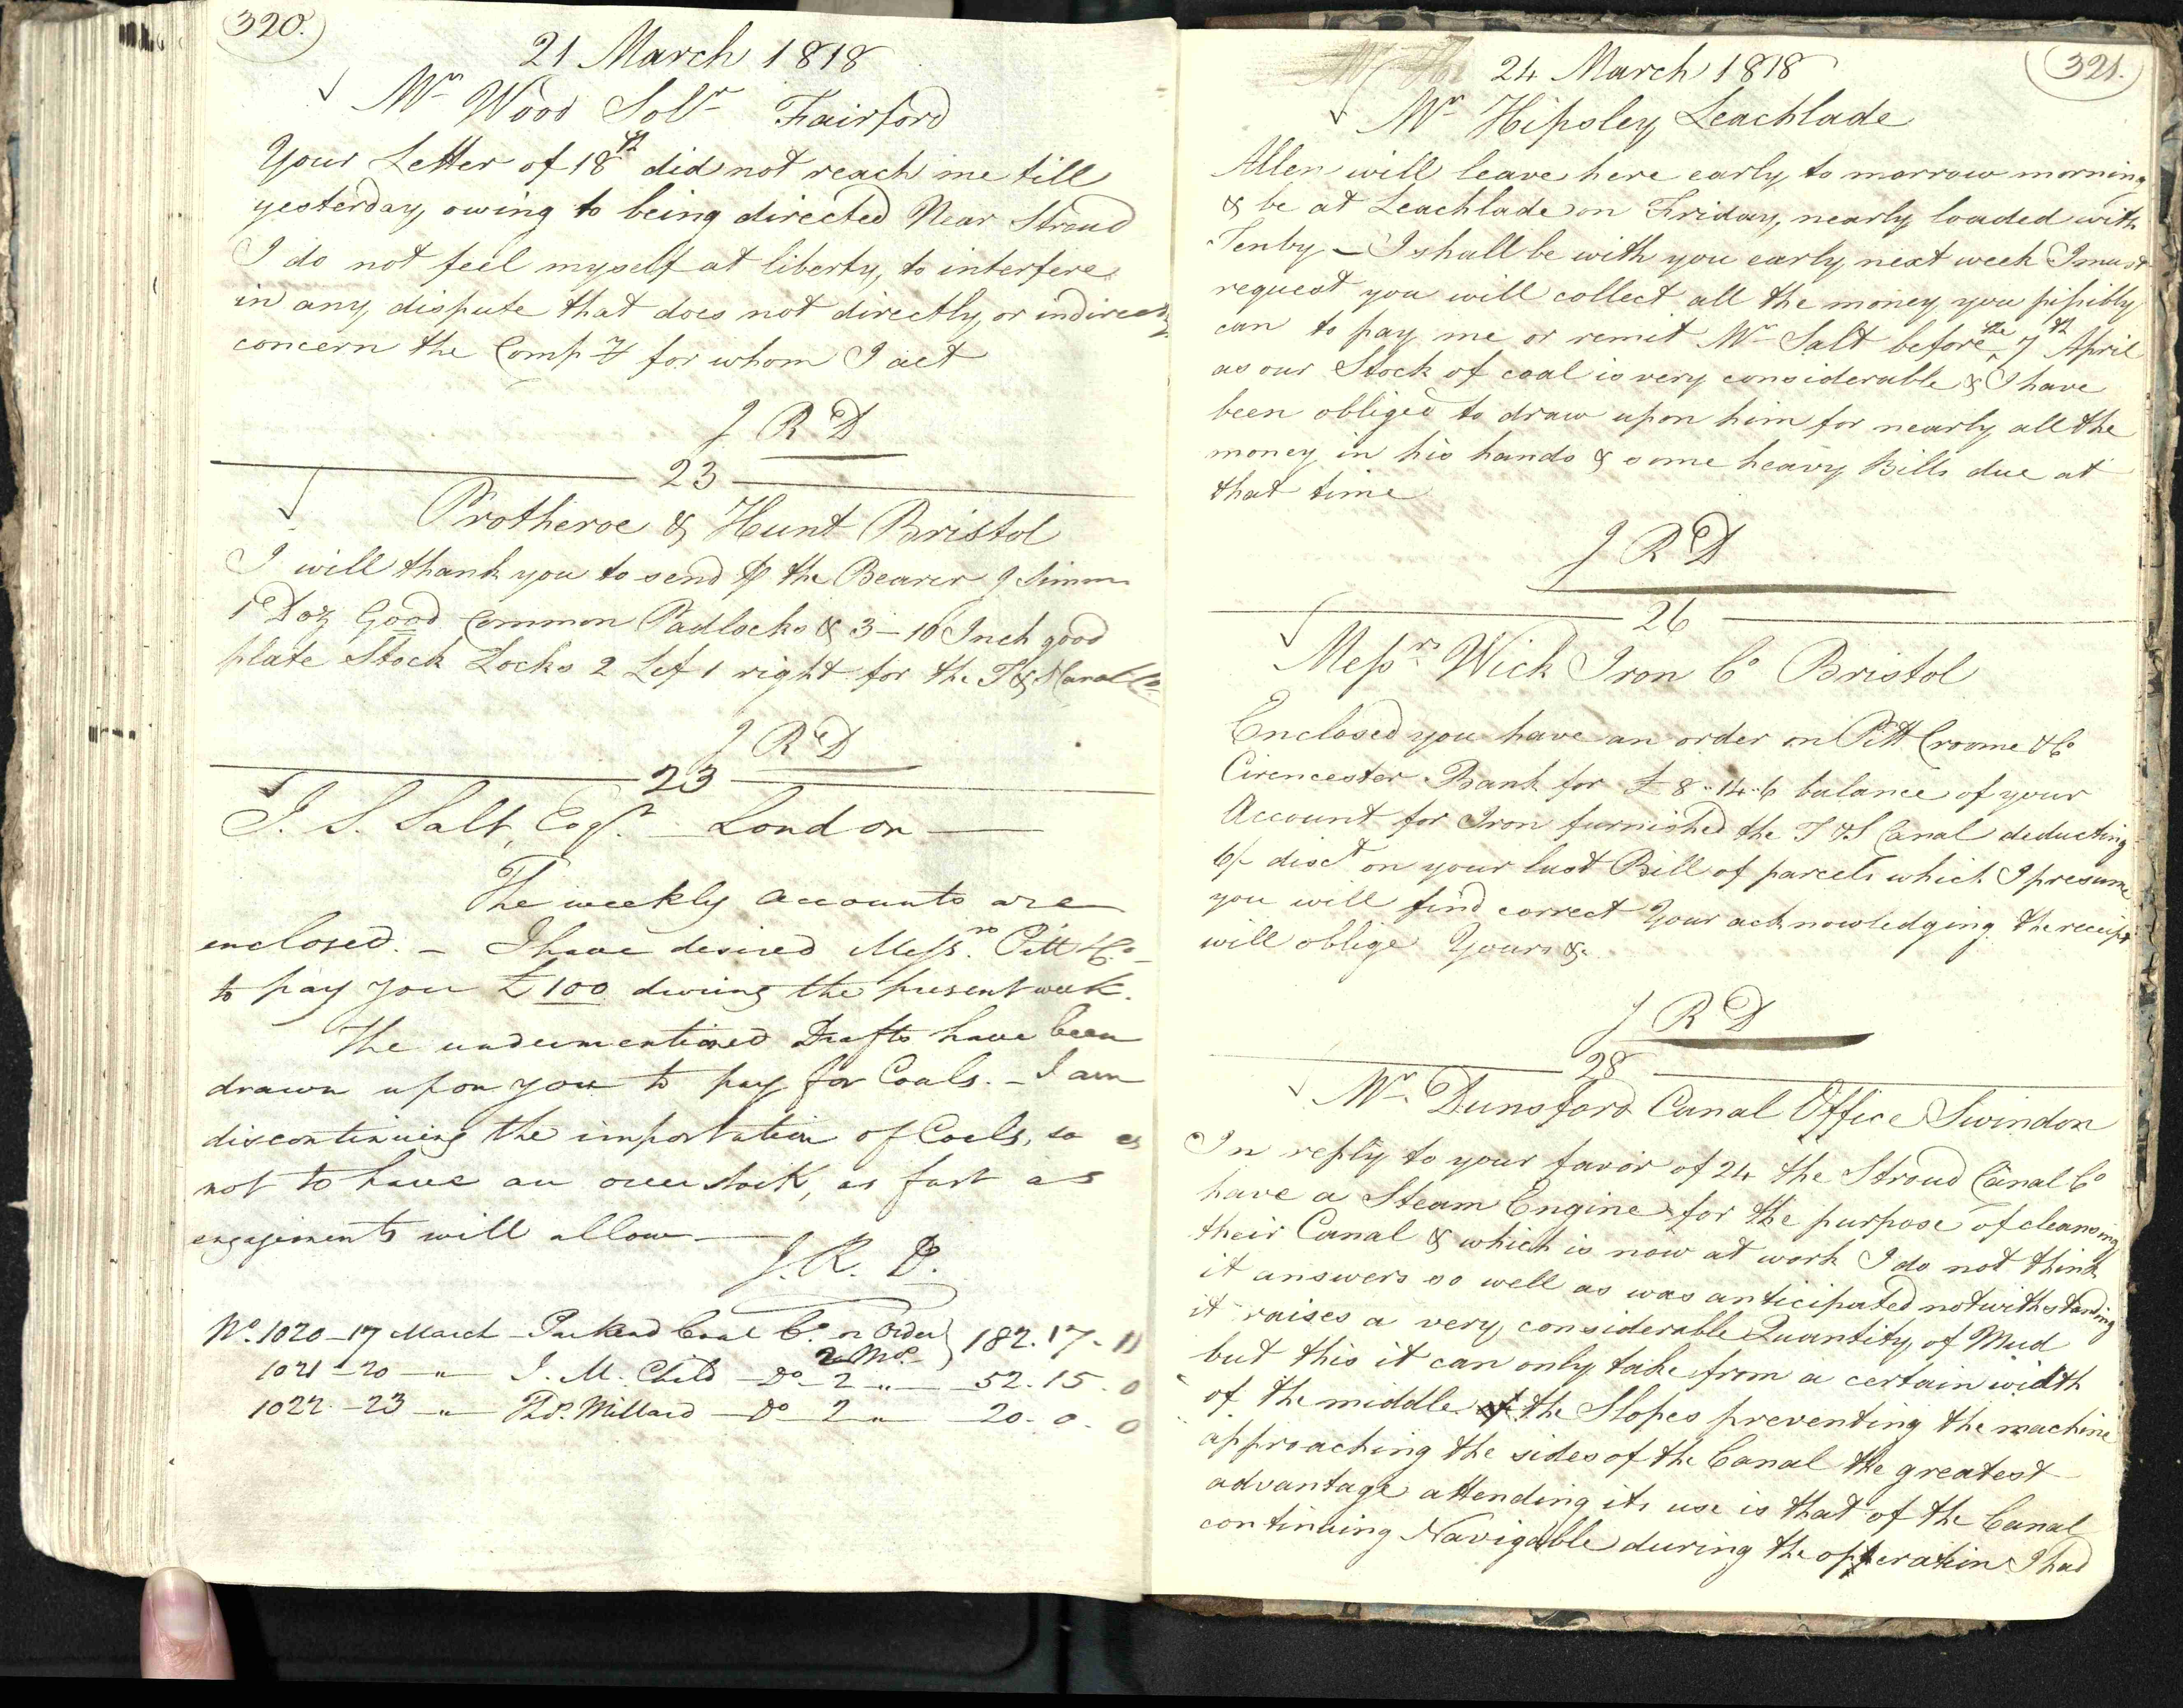 320.
21 March 1818
Mr Wood Solr Fairford
Your Letter of 18th did not reach me till
yesterday owing to being directed Near Stroud
I do not feel myself at liberty, to interfere
in any dispute that does not directly, or indirectly
concern the Compy for whom I act
J R D
23
Protheroe & Hunt Bristol
I will thank you to send ⅌ the Bearer J Simms
1 Doz Good Common Padlocks & 3 - 10 Inch good
plate Stock Locks 2 Left 1 right for the T & S Canal Co
J R D
23
J. S. Salt, Esqr. London
The weekly accounts are
enclosed. - I have desired Messrs. Pitt & Co.
to pay you £100 during the present week.
The undermentioned Drafts have been
drawn upon you to pay for Coals. - I am
discontinuing the importation of Coals, so as
not to have an overstock, as fast as
engagements will allow
J. R. D.
No. 1020 - 17 March - Parkend Coal Co. or Order 2 Mos. } 182. 17. 11
1021 - 20 - " - J. M. Child - Do - 2 " - 52. 15. 0
1022 - 23 - " - Thos. Millard - Do 2 " - 20. 0. 0
321.
24 March 1818
Mr Hipsley Leachlade
Allen will leave here early to morrow morning
& be at Leachlade on Friday, nearly loaded with
Tenby - I shall be with you early next week I must
request you will collect all the money you possibly
can to pay me or remit Mr Salt before the 7th April
as our Stock of coal is very considerable & I have
been obliged to draw upon him for nearly all the
money in his hands & some heavy Bills due at
that time
J R D
26
Messrs Wick Iron Co Bristol
Enclosed you have an order on Pitt Croome & Co
Cirencester Bank for £8-14-6 balance of your
Account for Iron furnished the T & S Canal deducting
6/- disct on your last Bill of parcels which I presume
you will find correct Your acknowledging the receipt
will oblige Yours &c
J R D
28
Mr. Dunsford Canal Office Swindon
In reply to your favor of 24 the Stroud Canal Co
have a Steam Engine for the purpose of cleansing
their Canal & which is now at work I do not think
it answers so well as was anticipated notwithstanding
it raises a very considerable Quantity of Mud
but this it can only take from a certain width
of the middle of the Slopes preventing the machine
approaching the sides of the Canal the greatest
advantage attending its use is that of the Canal
continuing Navigable during the opperation I had